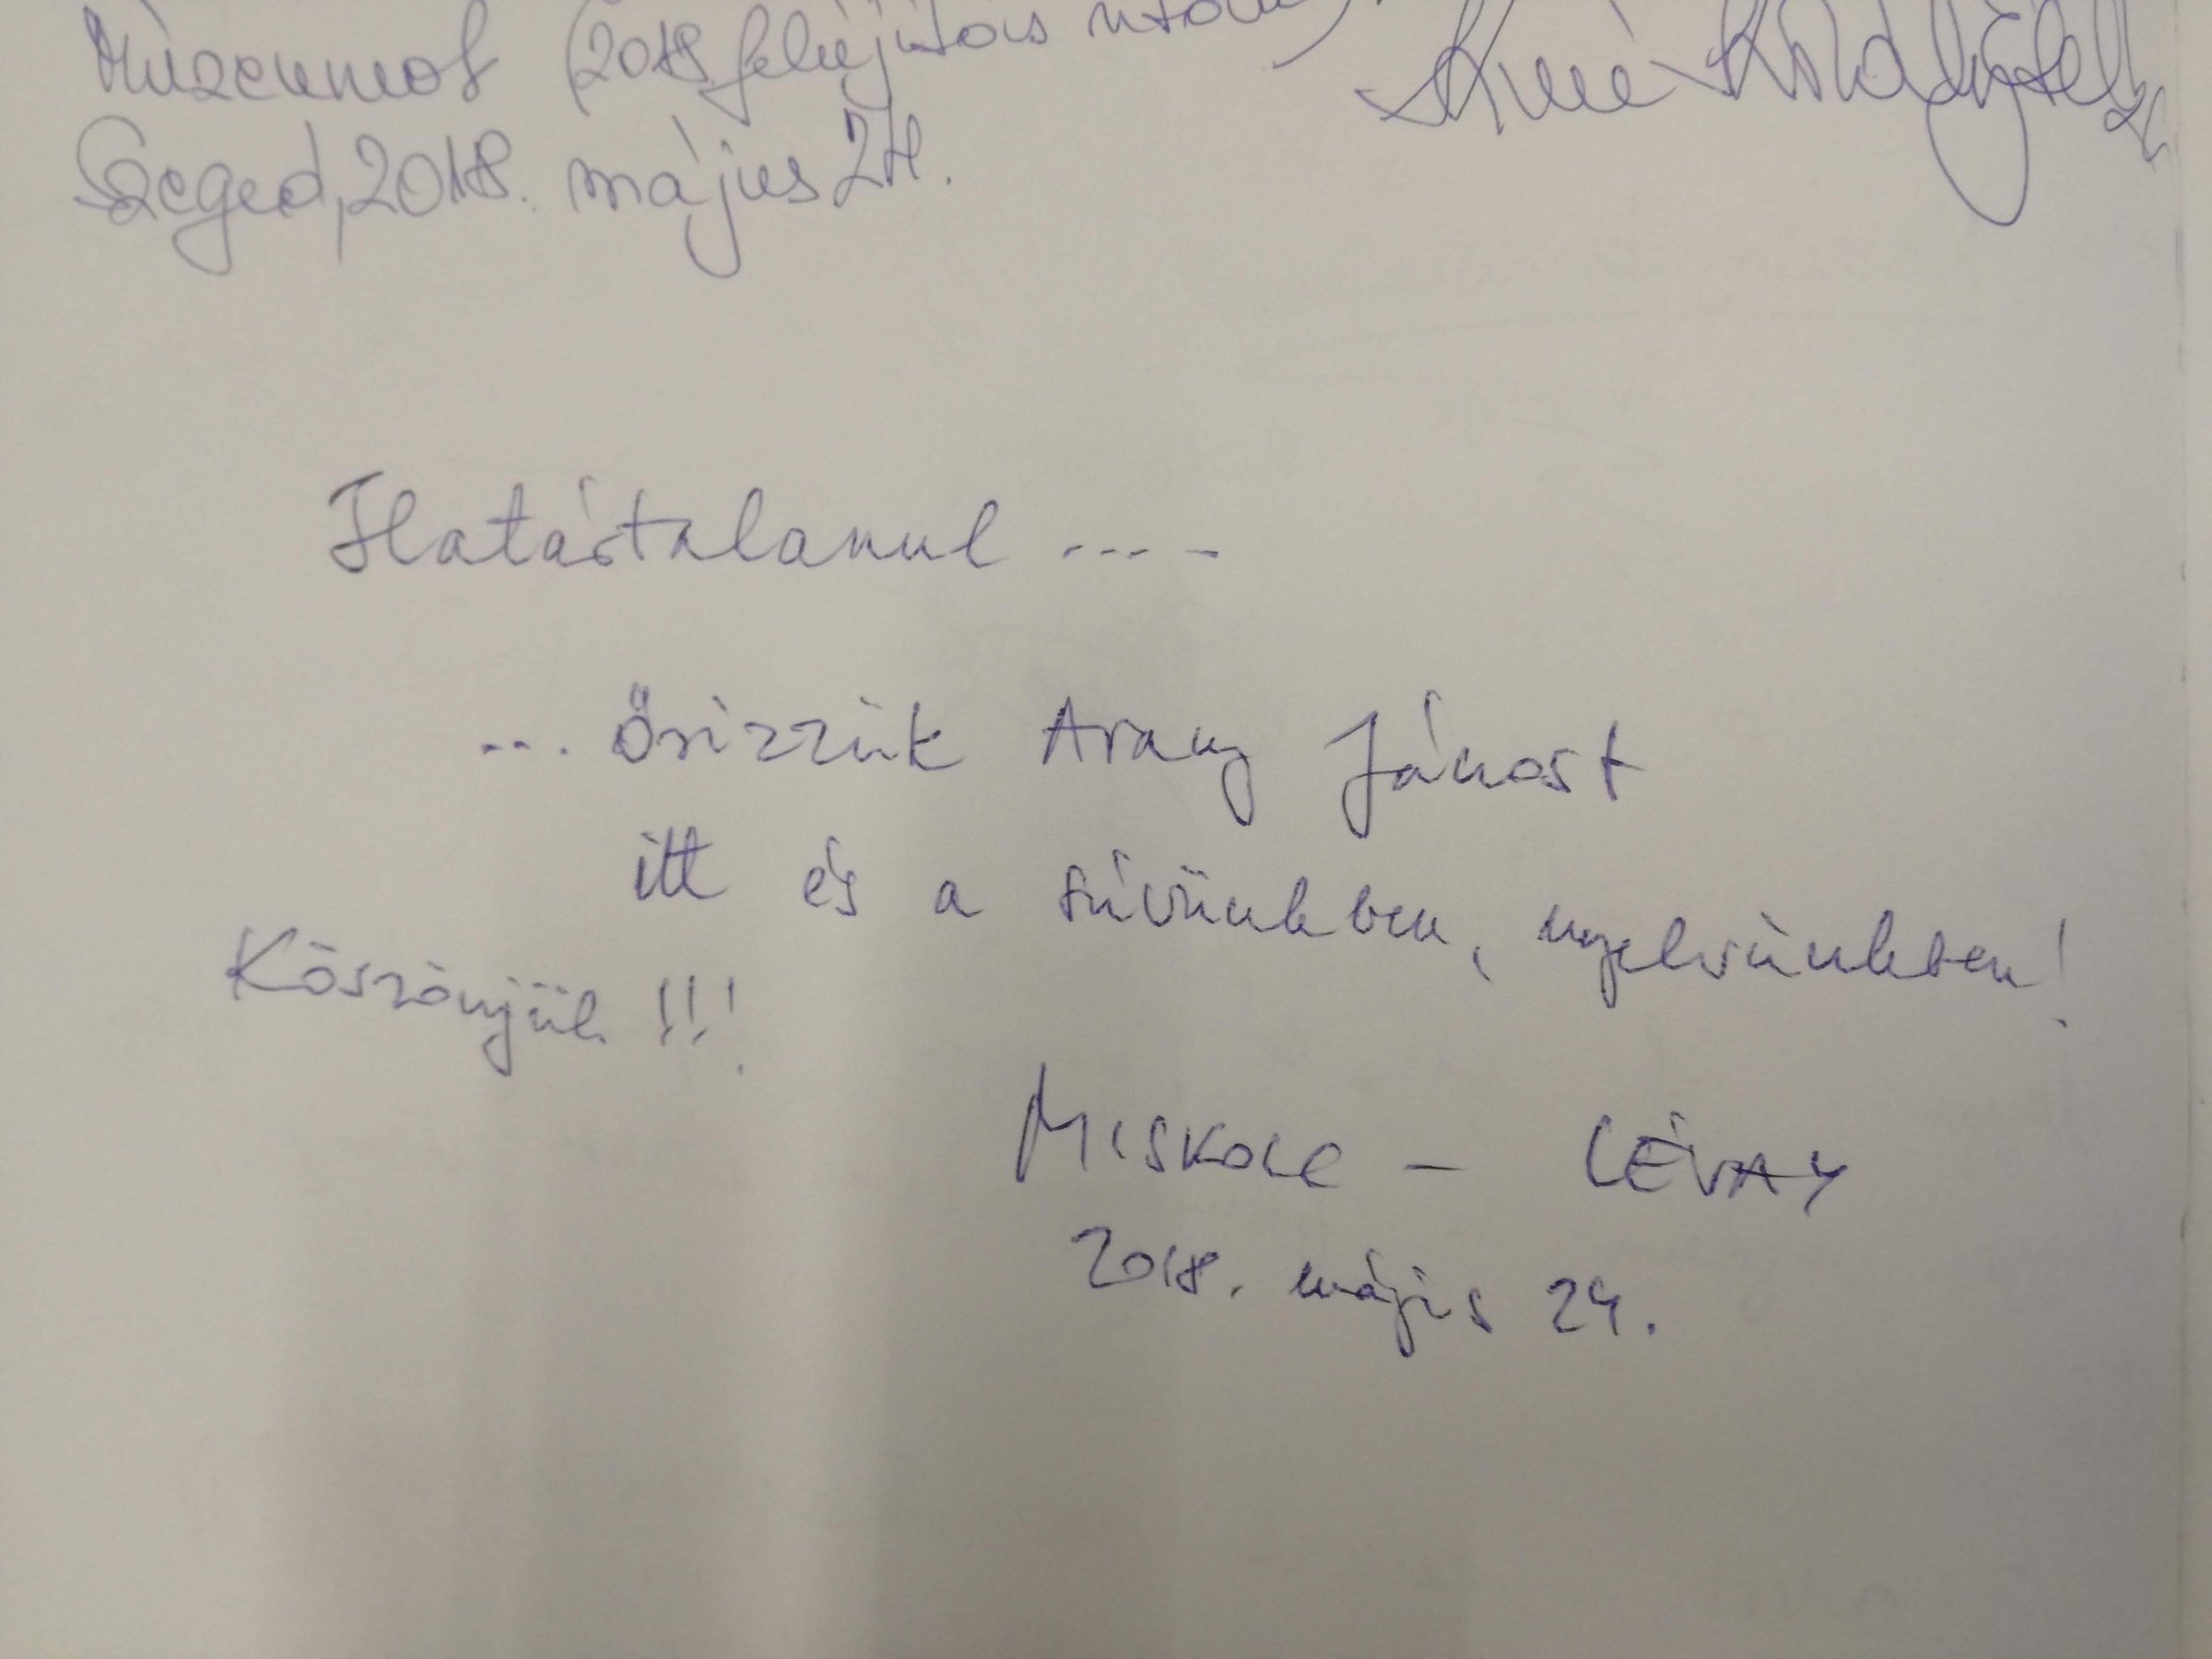 Múzeumot (2018 felújítás után)
Szeged, 2018. május 24.
Határtalanul ----
... őrizzük Arany Jánost
itt és a szívünkben, nyelvünkben!
Köszönjük !!!
MISKOLC - LÉVAY
2018. május 24.